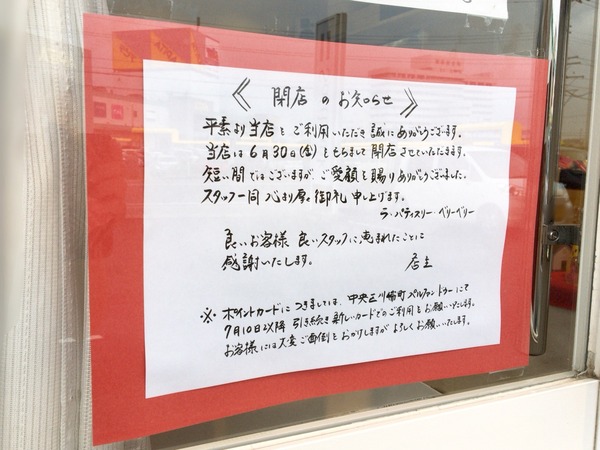 《 閉店 の お知らせ 》
平素より当店を ご利用いただき 誠にありがとうございます。
当店は6月30日(金)をもちまして 閉店 させていただきます。
短い間ではございますが、ご愛顧を 賜り ありがとうございました。
スタッフ一同 心より厚く 御礼 申し上げます。
ラ・パティスリー ベリーベリー
良いお客様 良いスタッフに恵まれたことに
感謝いたします。 店主
※ ポイントカードに つきましては、中央区川崎町 にて
7月10日以降 引き続き 新しいカードでのご利用を お願いいたします。
お客様には大変 ご面倒を おかけしますが よろしく お願いいたします。